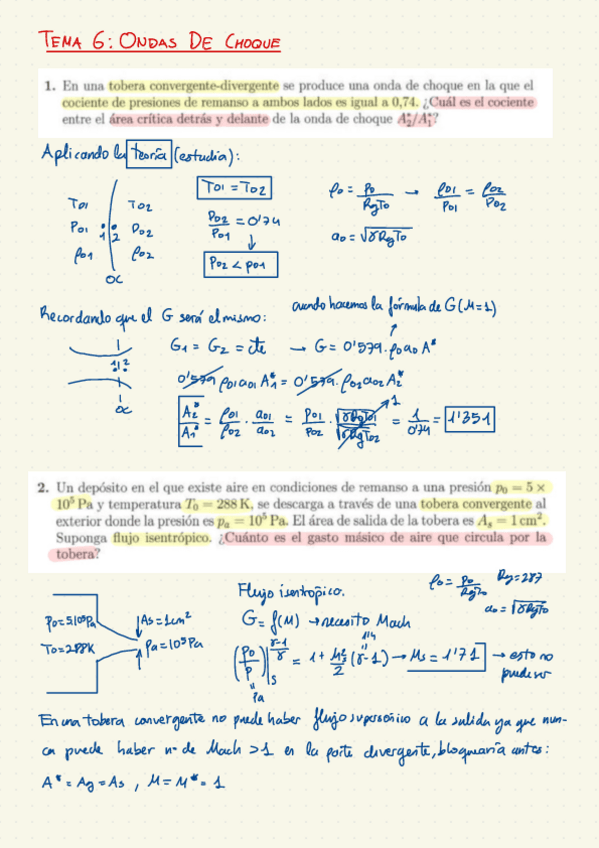 TEMA 6: ONDAS DE CHOQUE
1. En una tobera convergente-divergente se produce una onda de choque en la que el
cociente de presiones de remanso a ambos lados es igual a 0,74. ¿Cuál es el cociente
entre el área crítica detrás y delante de la onda de choque A₂*/A₁*?
Aplicando la teoría (estudia):
T01 T02
P01 1 2 P02
ρ01 ρ02
OC
T01 = T02
P02/P01 = 0'74
↓
P02 < P01
ρ0 = P0/RgT0 → ρ01/P01 = ρ02/P02
a0 = √γRgT0
Recordando que el G será el mismo:
cuando hacemos la fórmula de G(M=1)
1 2
OC
G1 = G2 = cte → G = 0'579·ρ0a0A*
0'579 ρ01a01A1* = 0'579·ρ02a02A2*
A2*/A1* = ρ01/ρ02 · a01/a02 = P01/P02 · √γRgT01/√γRgT02 = 1/0'74 = 1'351
1
2. Un depósito en el que existe aire en condiciones de remanso a una presión p₀ = 5 ×
10⁵ Pa y temperatura T₀ = 288 K, se descarga a través de una tobera convergente al
exterior donde la presión es pₐ = 10⁵ Pa. El área de salida de la tobera es Aₛ = 1 cm².
Suponga flujo isentrópico. ¿Cuánto es el gasto másico de aire que circula por la
tobera?
P0=5·10⁵Pa
T0=288K
As=1cm²
Pa=10⁵Pa
Flujo isentrópico.
G = f(M) → necesito Mach
ρ0 = P0/RgT0 Rg=287
a0=√γRgT0
(P0/P)^(γ-1/γ)|s = 1 + Ms²/2 (γ-1) → Ms = 1'71 → esto no
puede ser
1'4
Pa
En una tobera convergente no puede haber flujo supersónico a la salida ya que nun-
ca puede haber nº de Mach >1 en la parte divergente, bloquearía antes:
A* = Ag = As, M = M* = 1